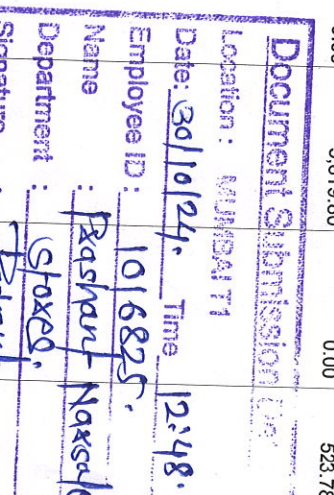 0.00 523.7
Document Submission
Location : MUMBAI T1
Date: 30/10/24. Time 12:48.
Employee ID : 1016825.
Name : Prashant
Department : Stores.
Signature :